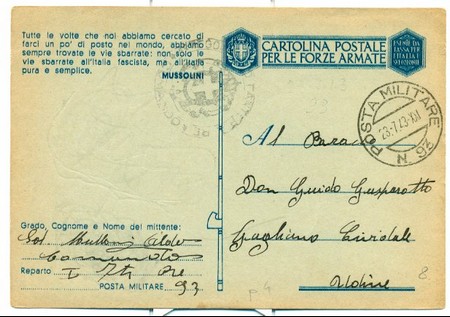 Tutte le volte che noi abbiamo cercato di
farci un po' di posto nel mondo, abbiamo
sempre trovate le vie sbarrate: non solo le
vie sbarrate all'Italia fascista, ma all'Italia
pura e semplice.
MUSSOLINI
CARTOLINA POSTALE
PER LE FORZE ARMATE
POSTA MILITARE
N. 93
Al
Don Guido Gasparotto
Gagliano Cividale
Udine
Grado, Cognome e Nome del mittente:
Sol Aldo
Comando
Reparto
POSTA MILITARE 93